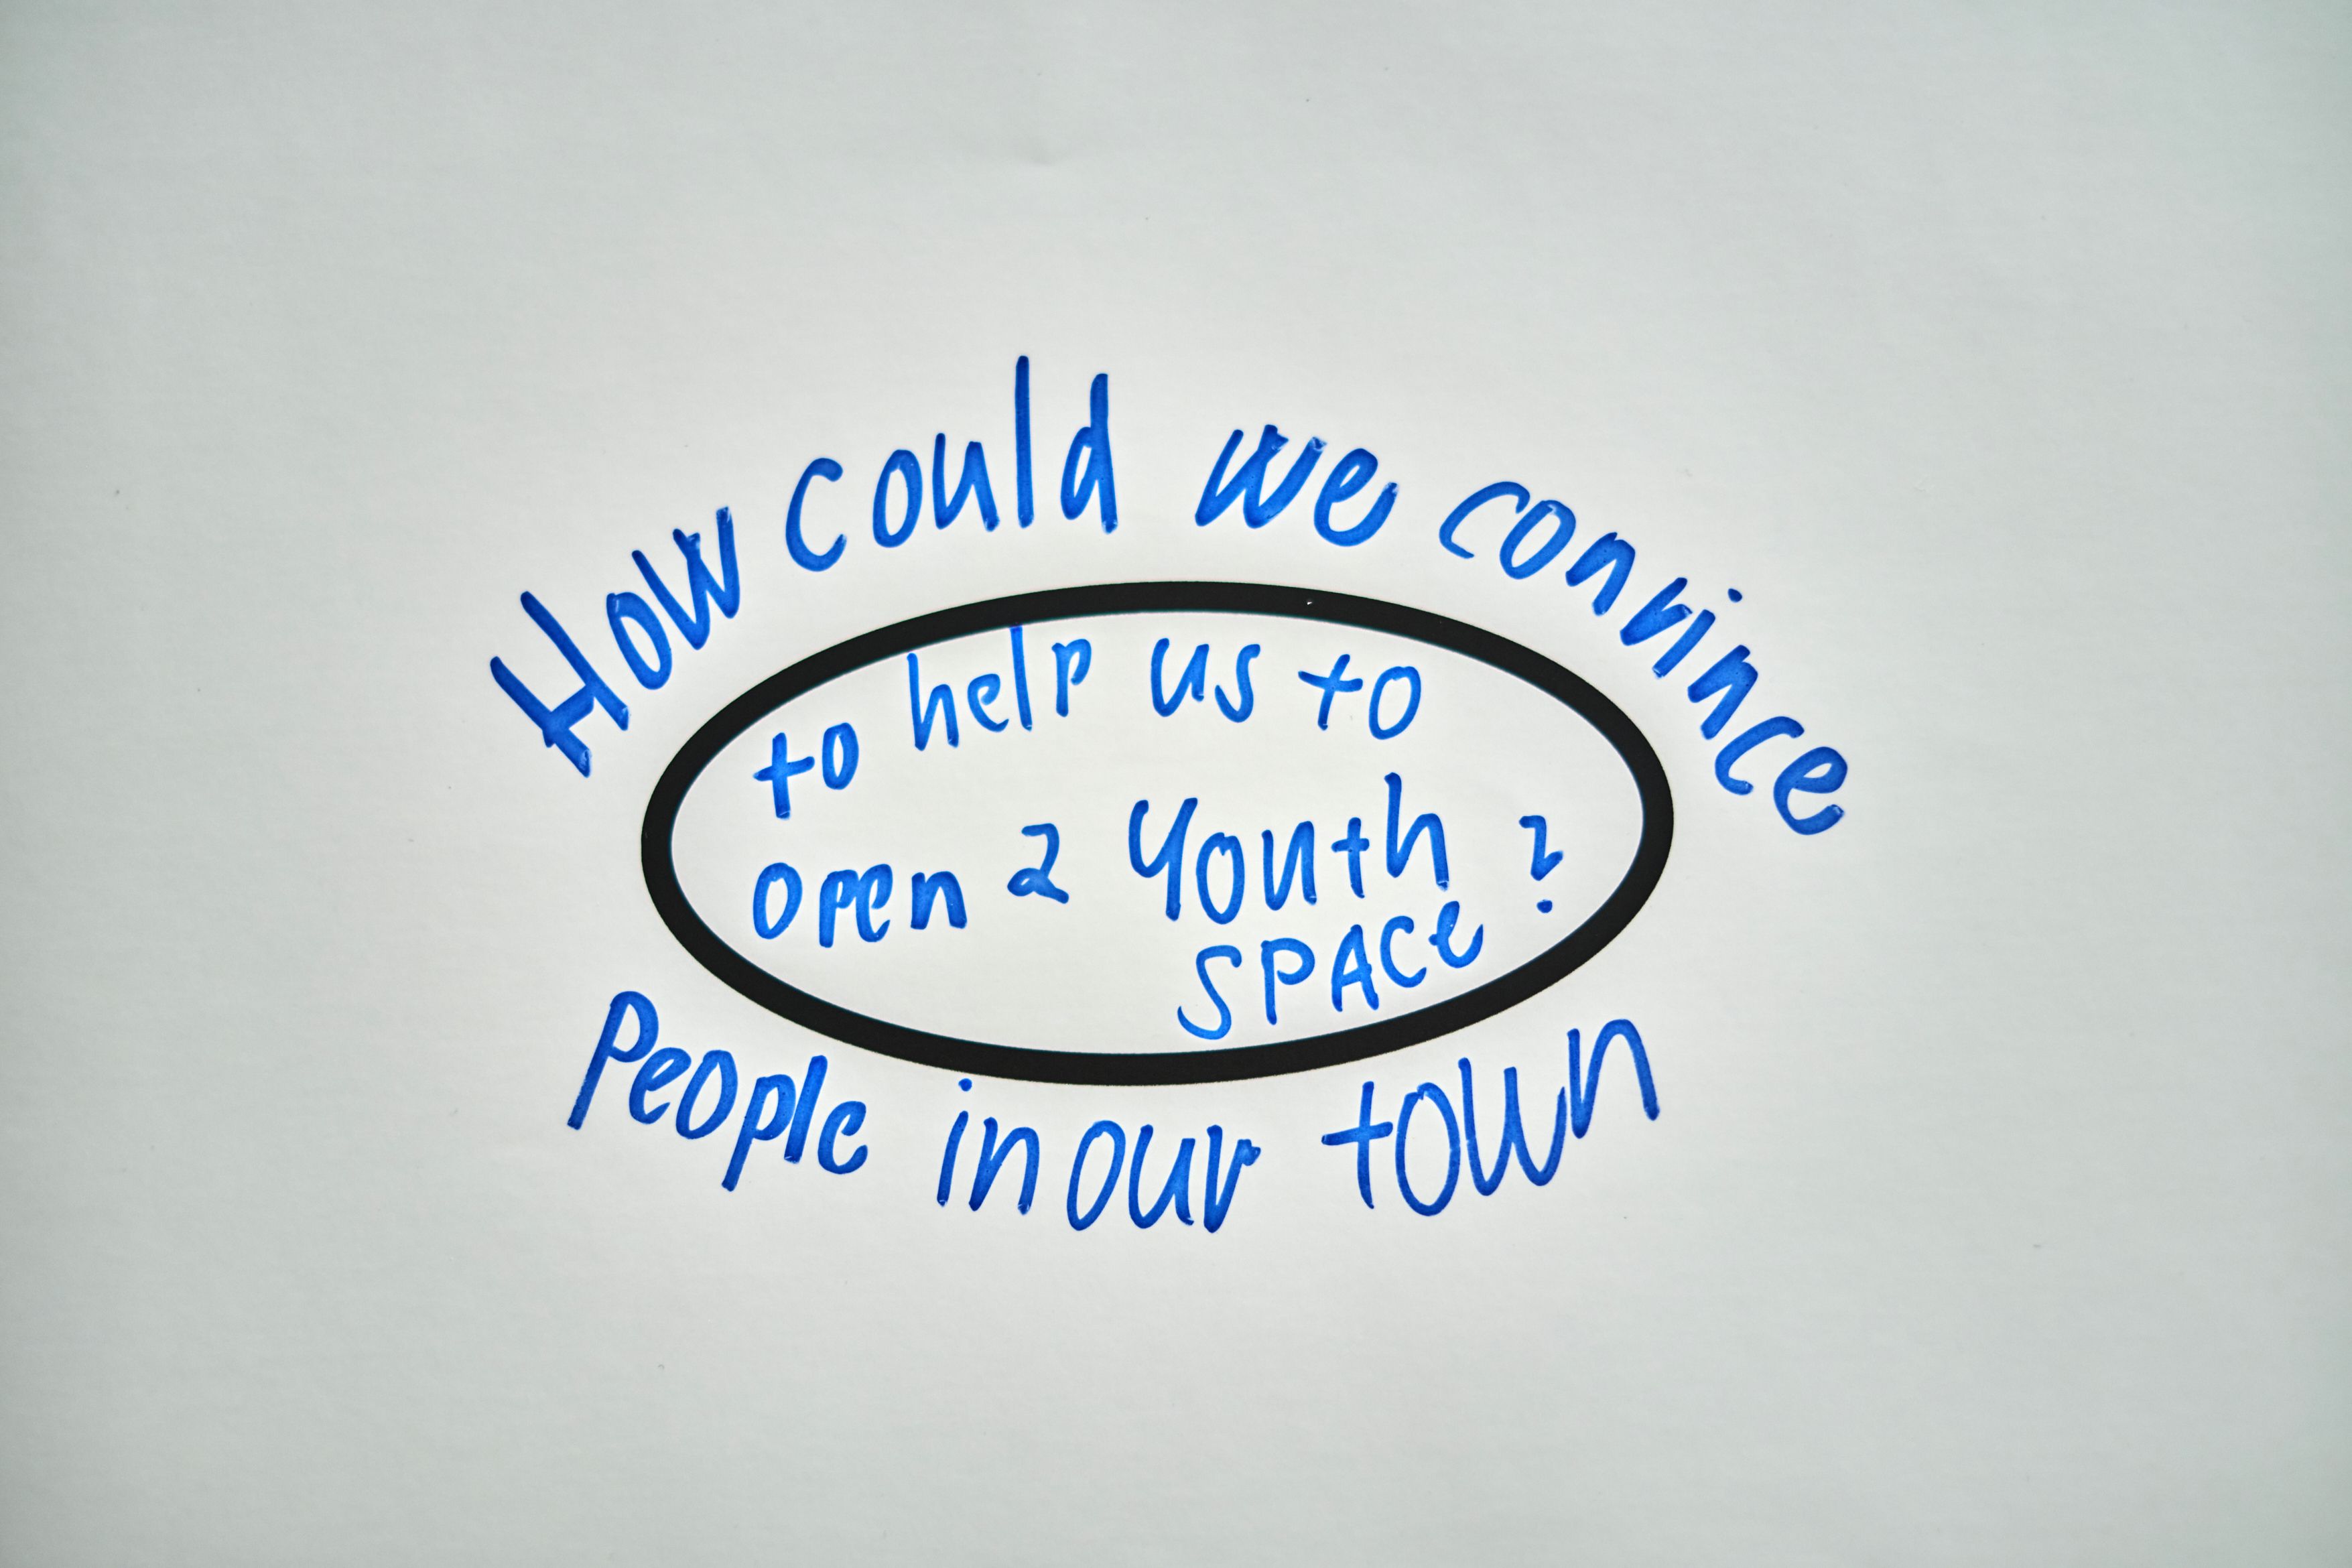 How could we convince
People in our town
to help us to
open a Youth ?
SPACe